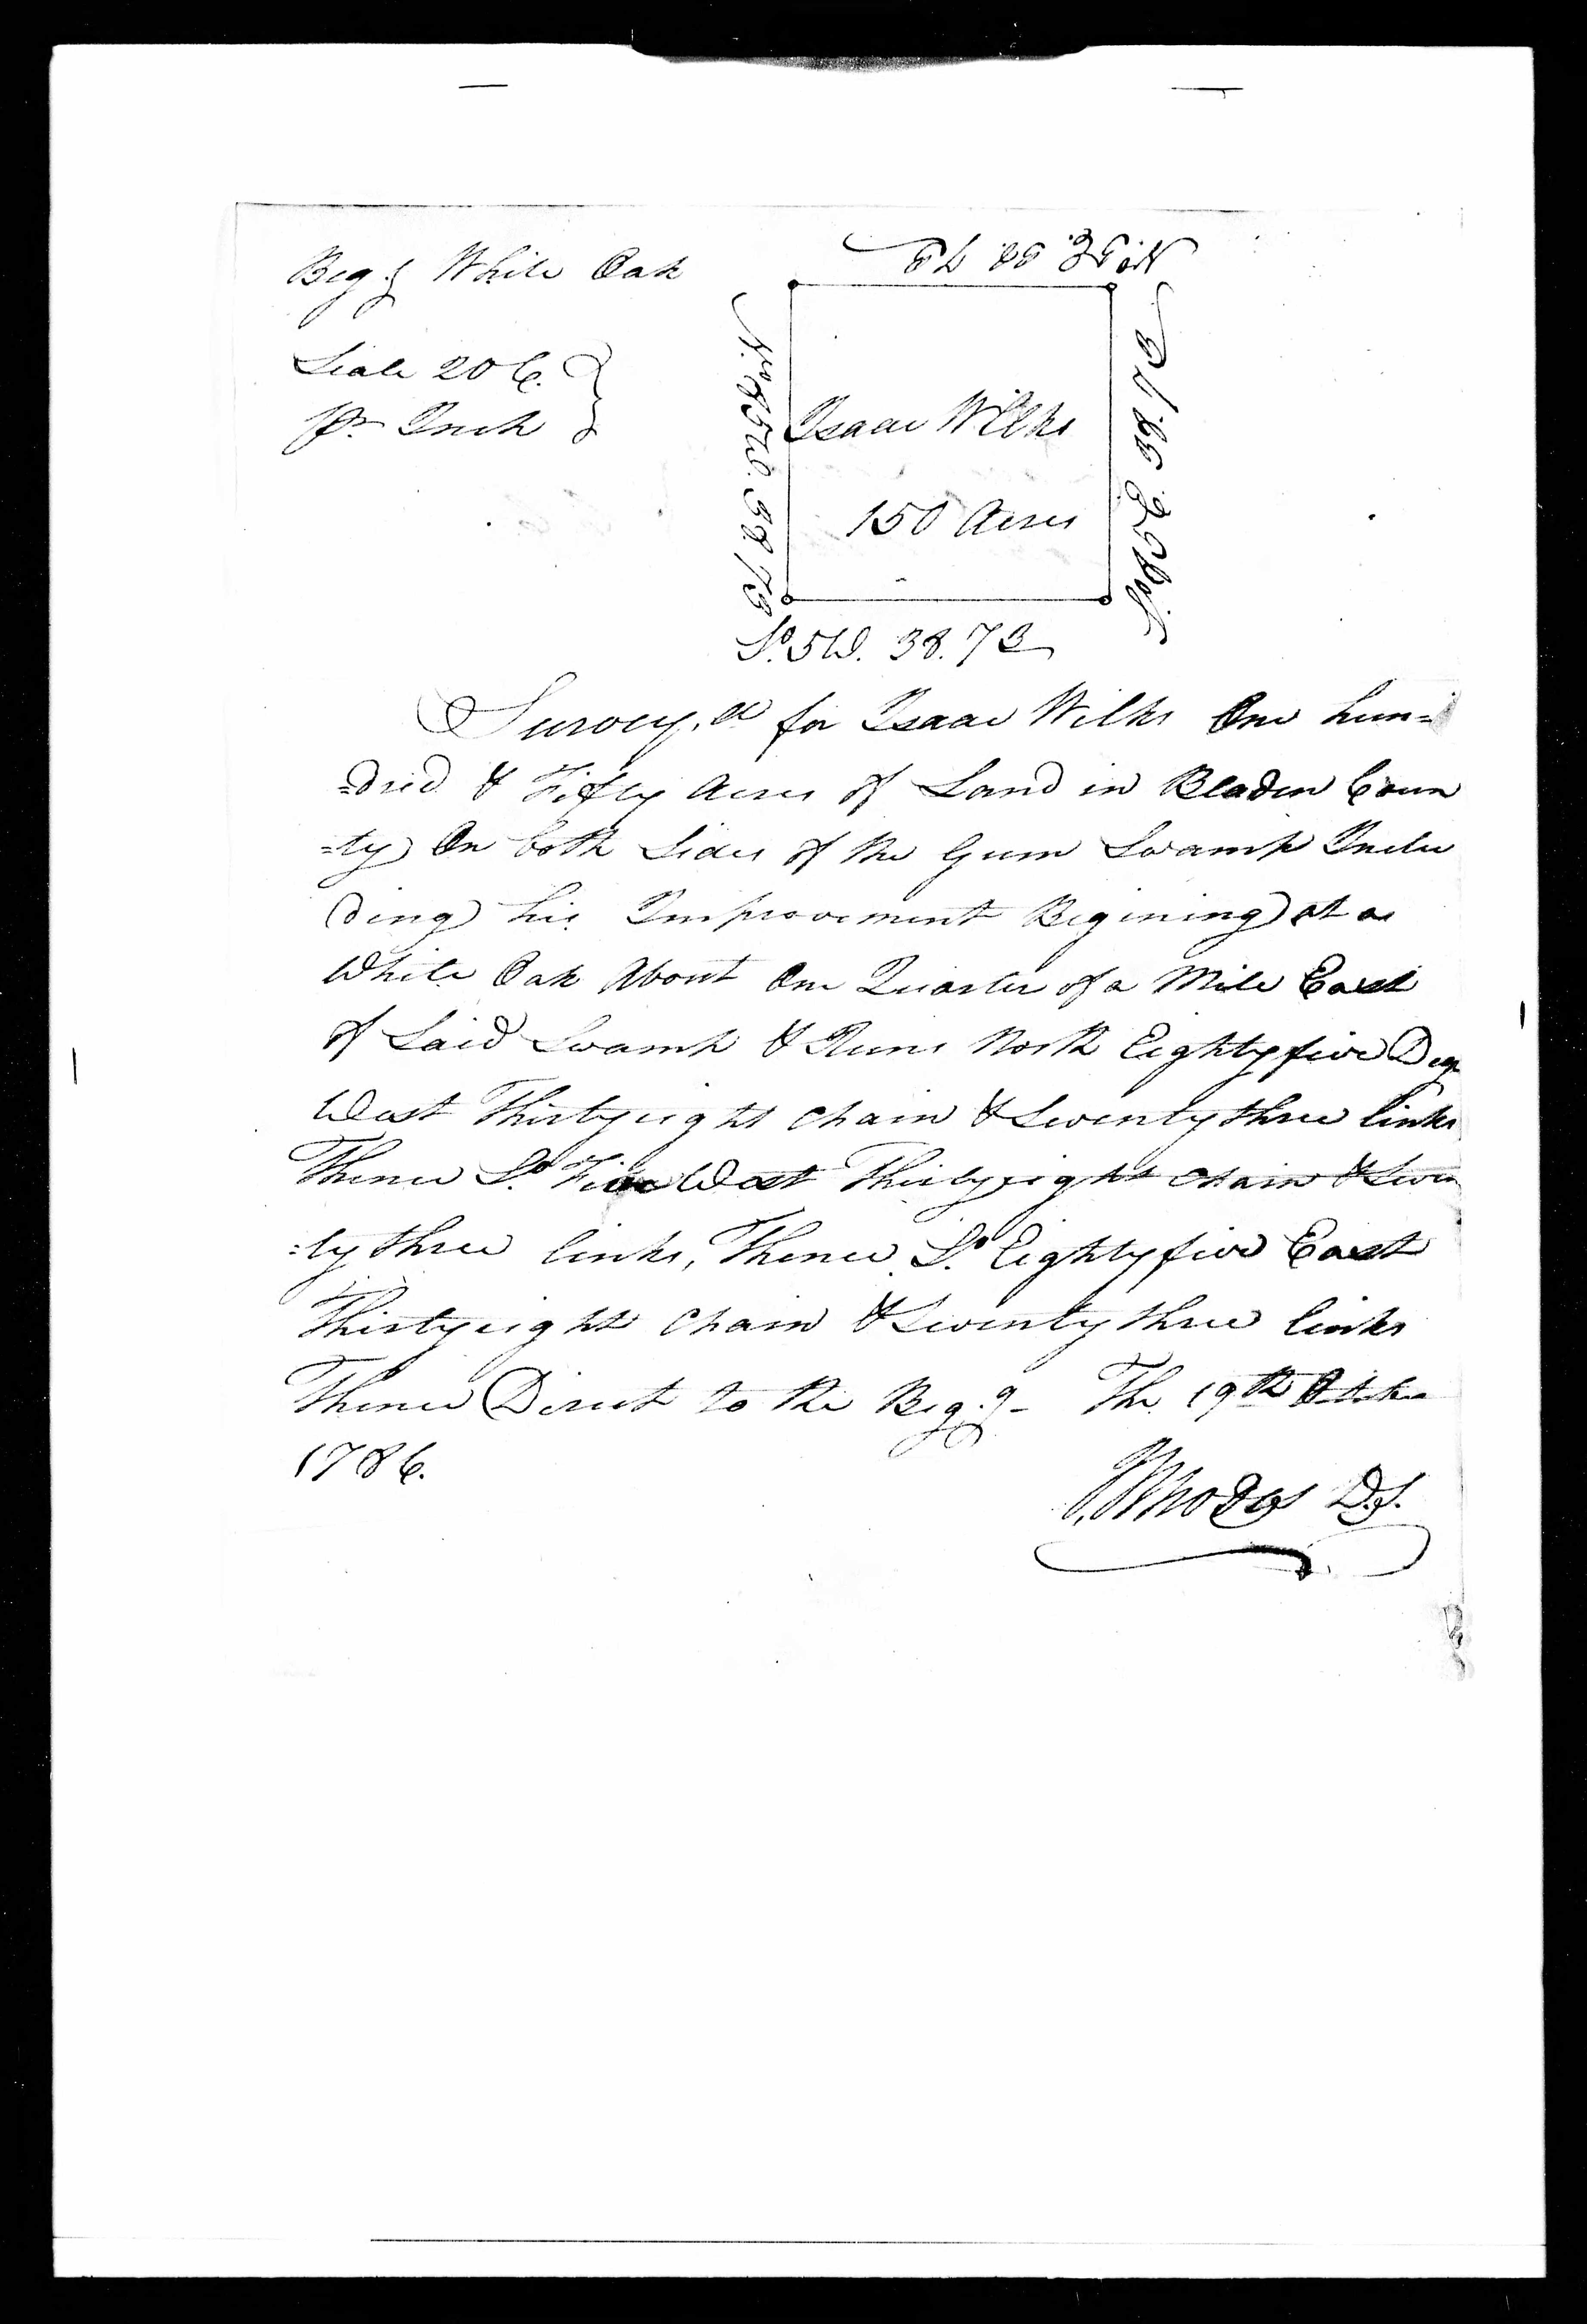 Beg.g White Oak
Scale 20 C.
pr. Inch
No. 5 E. 38. 73
No. 85 W. 38. 73
So. 85 E. 38. 73
Isaac Wilks
150 Acres
So. 5 W. 38. 73
Survey.d for Isaac Wilks One hun=
=dred & Fifty Acres of Land in Bladen Coun
=ty On both Sides of the Gum Swamp Inclu
ding his Improvement Begining at a
White Oak About One Quarter of a Mile East
of Said Swamp & Runs North Eightyfive Deg
West Thirtyeight Chain & Seventythree links
Thence So. Five West Thirtyeight Chain & Seven
=tythree links, Thence So. Eightyfive East
Thirtyeight Chain & Seventythree links
Thence Direct to the Beg.g - The 19th October
1786.
Rhodes D.S.